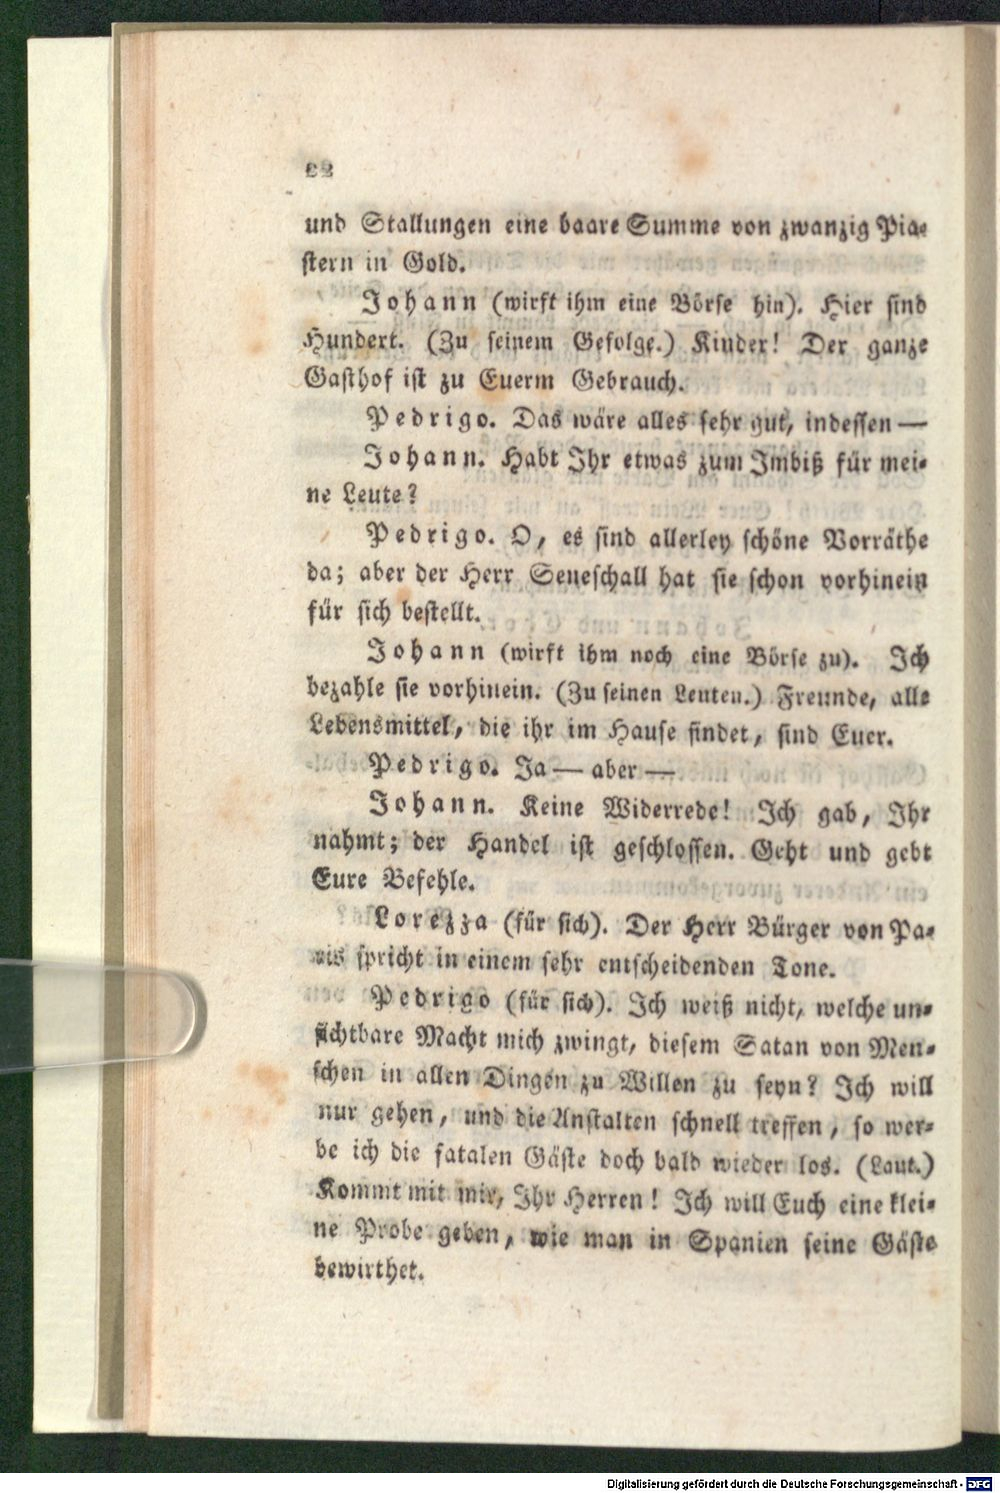 22
und Stallungen eine baare Summe von zwanzig Pia-
stern in Gold.
Johann (wirft ihm eine Börse hin). Hier sind
Hundert. (Zu seinem Gefolge.) Kinder! Der ganze
Gasthof ist zu Euerm Gebrauch.
Pedrigo. Das wäre alles sehr gut, indessen —
Johann. Habt Ihr etwas zum Imbiß für mei-
ne Leute?
Pedrigo. O, es sind allerley schöne Vorräthe
da; aber der Herr Seneschall hat sie schon vorhinein
für sich bestellt.
Johann (wirft ihm noch eine Börse zu). Ich
bezahle sie vorhinein. (Zu seinen Leuten.) Freunde, alle
Lebensmittel, die ihr im Hause findet, sind Euer.
Pedrigo. Ja — aber —
Johann. Keine Widerrede! Ich gab, Ihr
nahmt; der Handel ist geschlossen. Geht und gebt
Eure Befehle.
Lorezza (für sich). Der Herr Bürger von Pa-
ris spricht in einem sehr entscheidenden Tone.
Pedrigo (für sich). Ich weiß nicht, welche un-
sichtbare Macht mich zwingt, diesem Satan von Men-
schen in allen Dingen zu Willen zu seyn? Ich will
nur gehen, und die Anstalten schnell treffen, so wer-
de ich die fatalen Gäste doch bald wieder los. (Laut.)
Kommt mit mir, Ihr Herren! Ich will Euch eine klei-
ne Probe geben, wie man in Spanien seine Gäste
bewirthet.
Digitalisierung gefördert durch die Deutsche Forschungsgemeinschaft - DFG